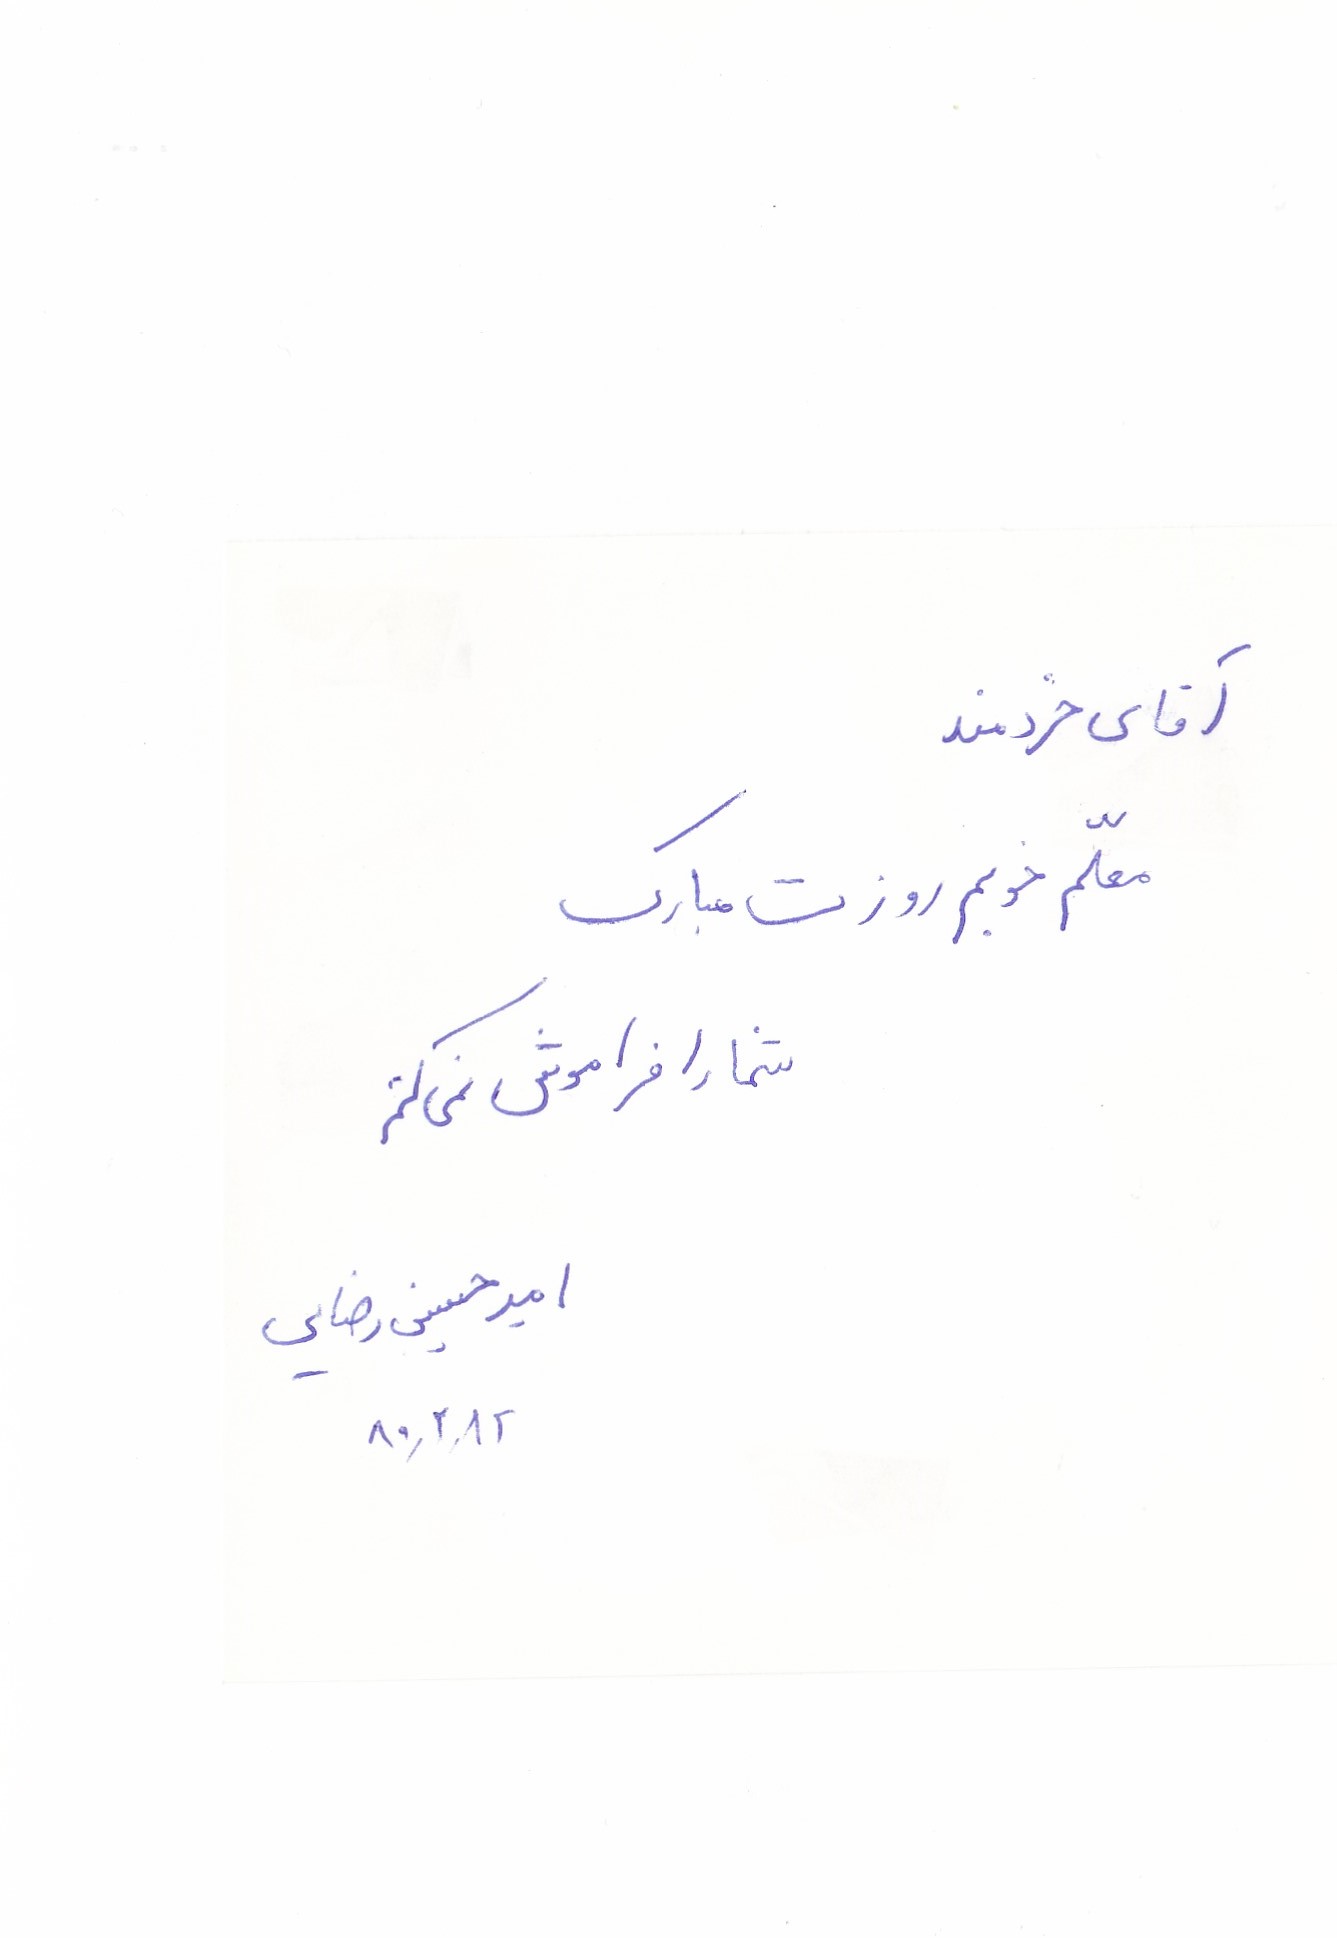 آقای خردمند
معلّم خوبم روزت مبارک
شما را فراموش نمی‌کنم
امیدحسین رضایی
۸۰٫۲٫۱۲